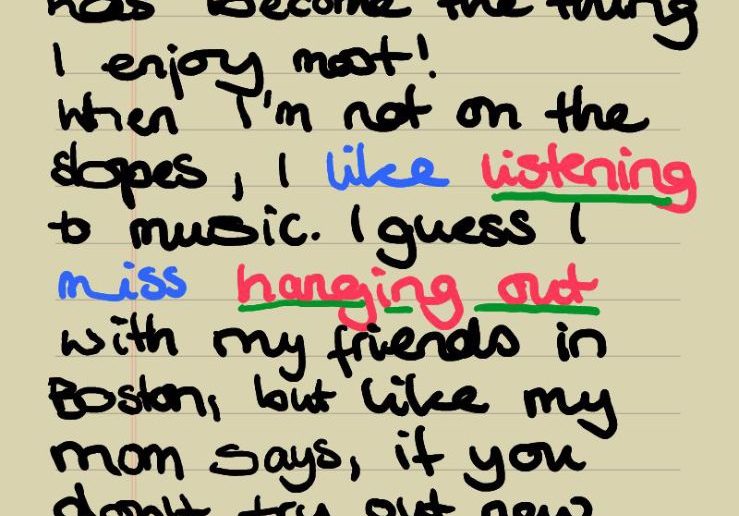 has become the thing
I enjoy most!
When I'm not on the
slopes, I like listening
to music. I guess I
miss hanging out
with my friends in
Boston, but like my
mom says, if you
don't try out new